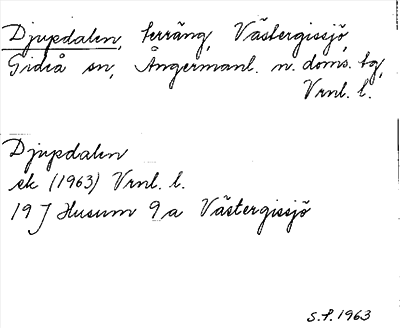 Djupdalen, terräng, Västergissjö,
Gideå sn, Ångermanl. n. doms. tg,
Vrnl. l.
Djupdalen
ek (1963) Vrnl. l.
19 J Husum 9a Västergissjö
S.F. 1963